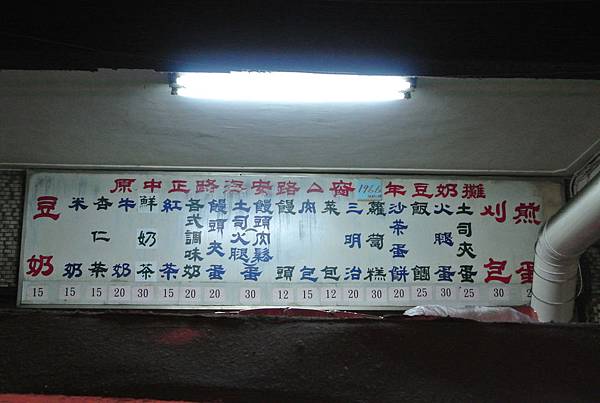 原中正路安路公 年豆奶攤
豆奶
米奶
杏仁茶
牛奶
鮮奶茶
紅茶
各式調味奶
饅頭夾蛋
土司火腿
饅頭肉鬆
蛋
饅頭
肉包
菜包
三明治
蘿蔔糕
沙茶蛋餅
飯糰
火腿蛋
土司夾蛋
刈包
煎蛋
15 15 15 20 30 15 20 20 30 12 15 12 20 30 20 25 30 25 30